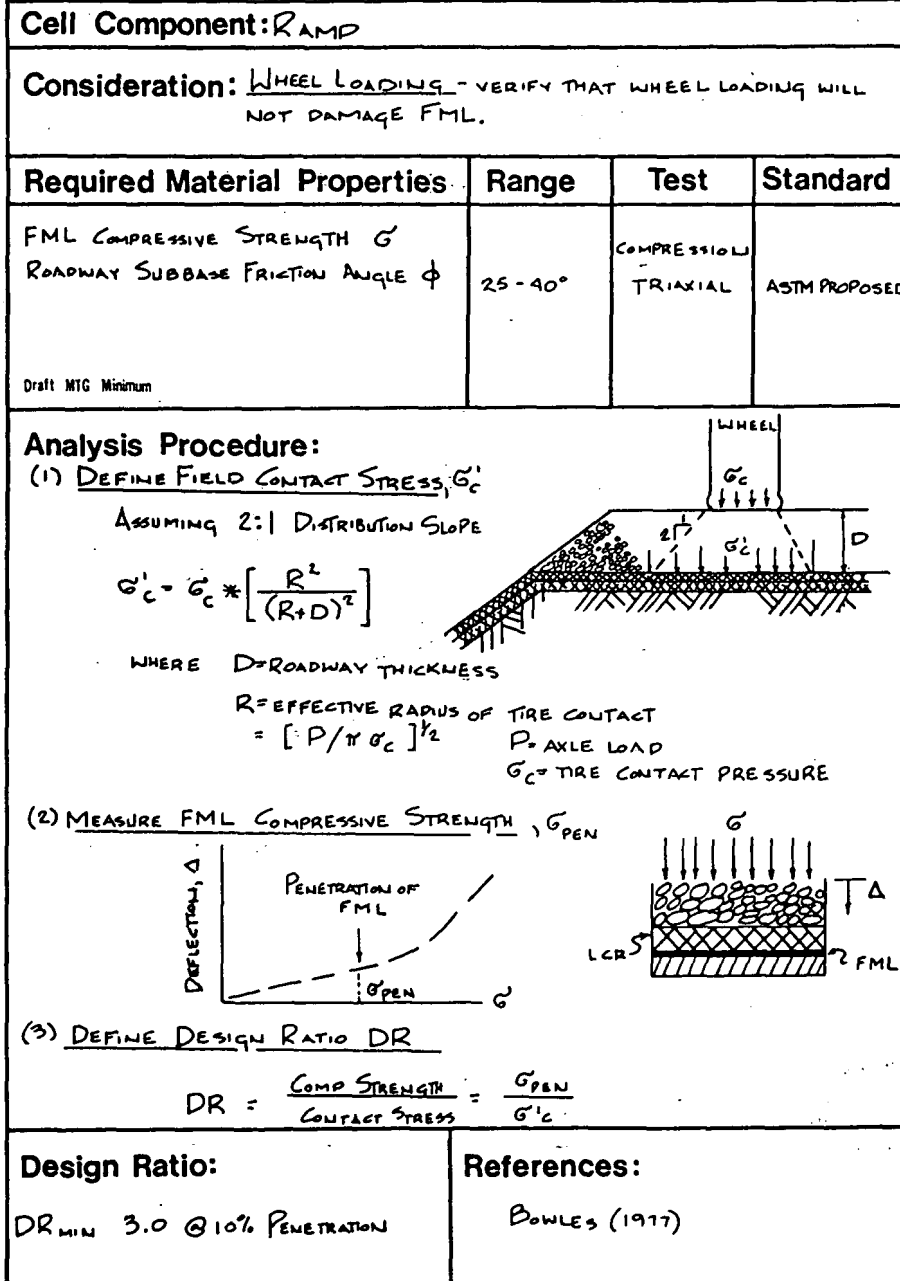 Cell Component: RAMP
Consideration: WHEEL LOADING - VERIFY THAT WHEEL LOADING WILL
NOT DAMAGE FML.
Required Material Properties Range Test Standard
FML COMPRESSIVE STRENGTH σ
COMPRESSION
ROADWAY SUBBASE FRICTION ANGLE ϕ 25-40° TRIAXIAL ASTM PROPOSED
Draft MTG Minimum
Analysis Procedure:
(1) DEFINE FIELD CONTACT STRESS, σc'
ASSUMING 2:1 DISTRIBUTION SLOPE
σc' = σc * [R² / (R+D)²]
WHEEL
σc
2 1
σc'
D
WHERE D=ROADWAY THICKNESS
R=EFFECTIVE RADIUS OF TIRE CONTACT
= [P/π σc]^1/2 P=AXLE LOAD
σc=TIRE CONTACT PRESSURE
(2) MEASURE FML COMPRESSIVE STRENGTH, σPEN
DEFLECTION, Δ
PENETRATION OF
FML
σPEN
σ
σ
Δ
LCR
FML
(3) DEFINE DESIGN RATIO DR
DR = COMP STRENGTH / CONTACT STRESS = σPEN / σ'c
Design Ratio:
DR MIN 3.0 @ 10% PENETRATION
References:
BOWLES (1977)